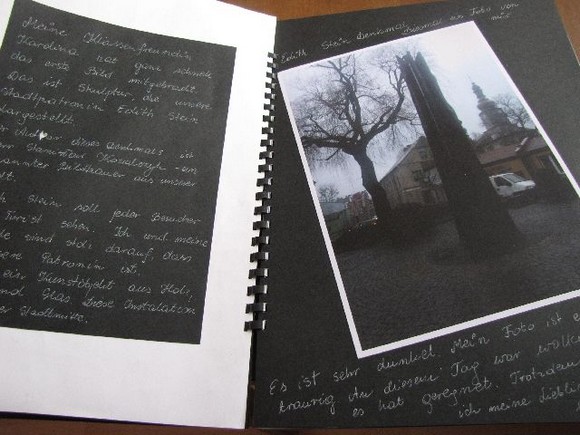 Meine Klassenfreundin
Karolina hat ganz schnell
das erste Bild mitgebracht.
Das ist Skulptur, die unsere
Stadtpatronin Edith Stein
dargestellt.
dieses Denkmals ist
Stanisław
Bildhauer aus unserer
Stein soll jeder Besucher
Turist sehen. Ich und meine
sind stolz darauf, dass
Patronin ist.
ein Kunstobjekt aus Holz,
und Glas. Diese Installation
Stadtmitte.
Edith Stein Denkmal
diesmal ein Foto von
mir
Es ist sehr dunkel. Mein Foto ist e
traurig. An diesem Tag war wolk
es hat geregnet. Trotzdem
ich meine Liebli